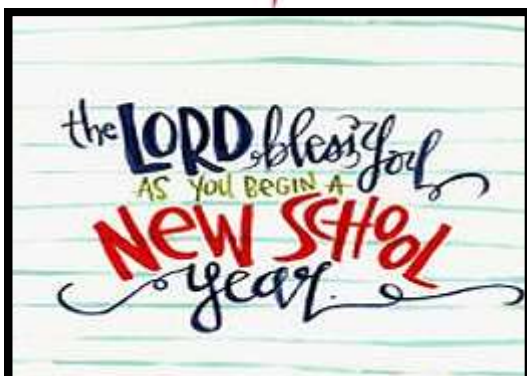 the LORD bless you
AS you BEGIN A
New SCHOOL
year.